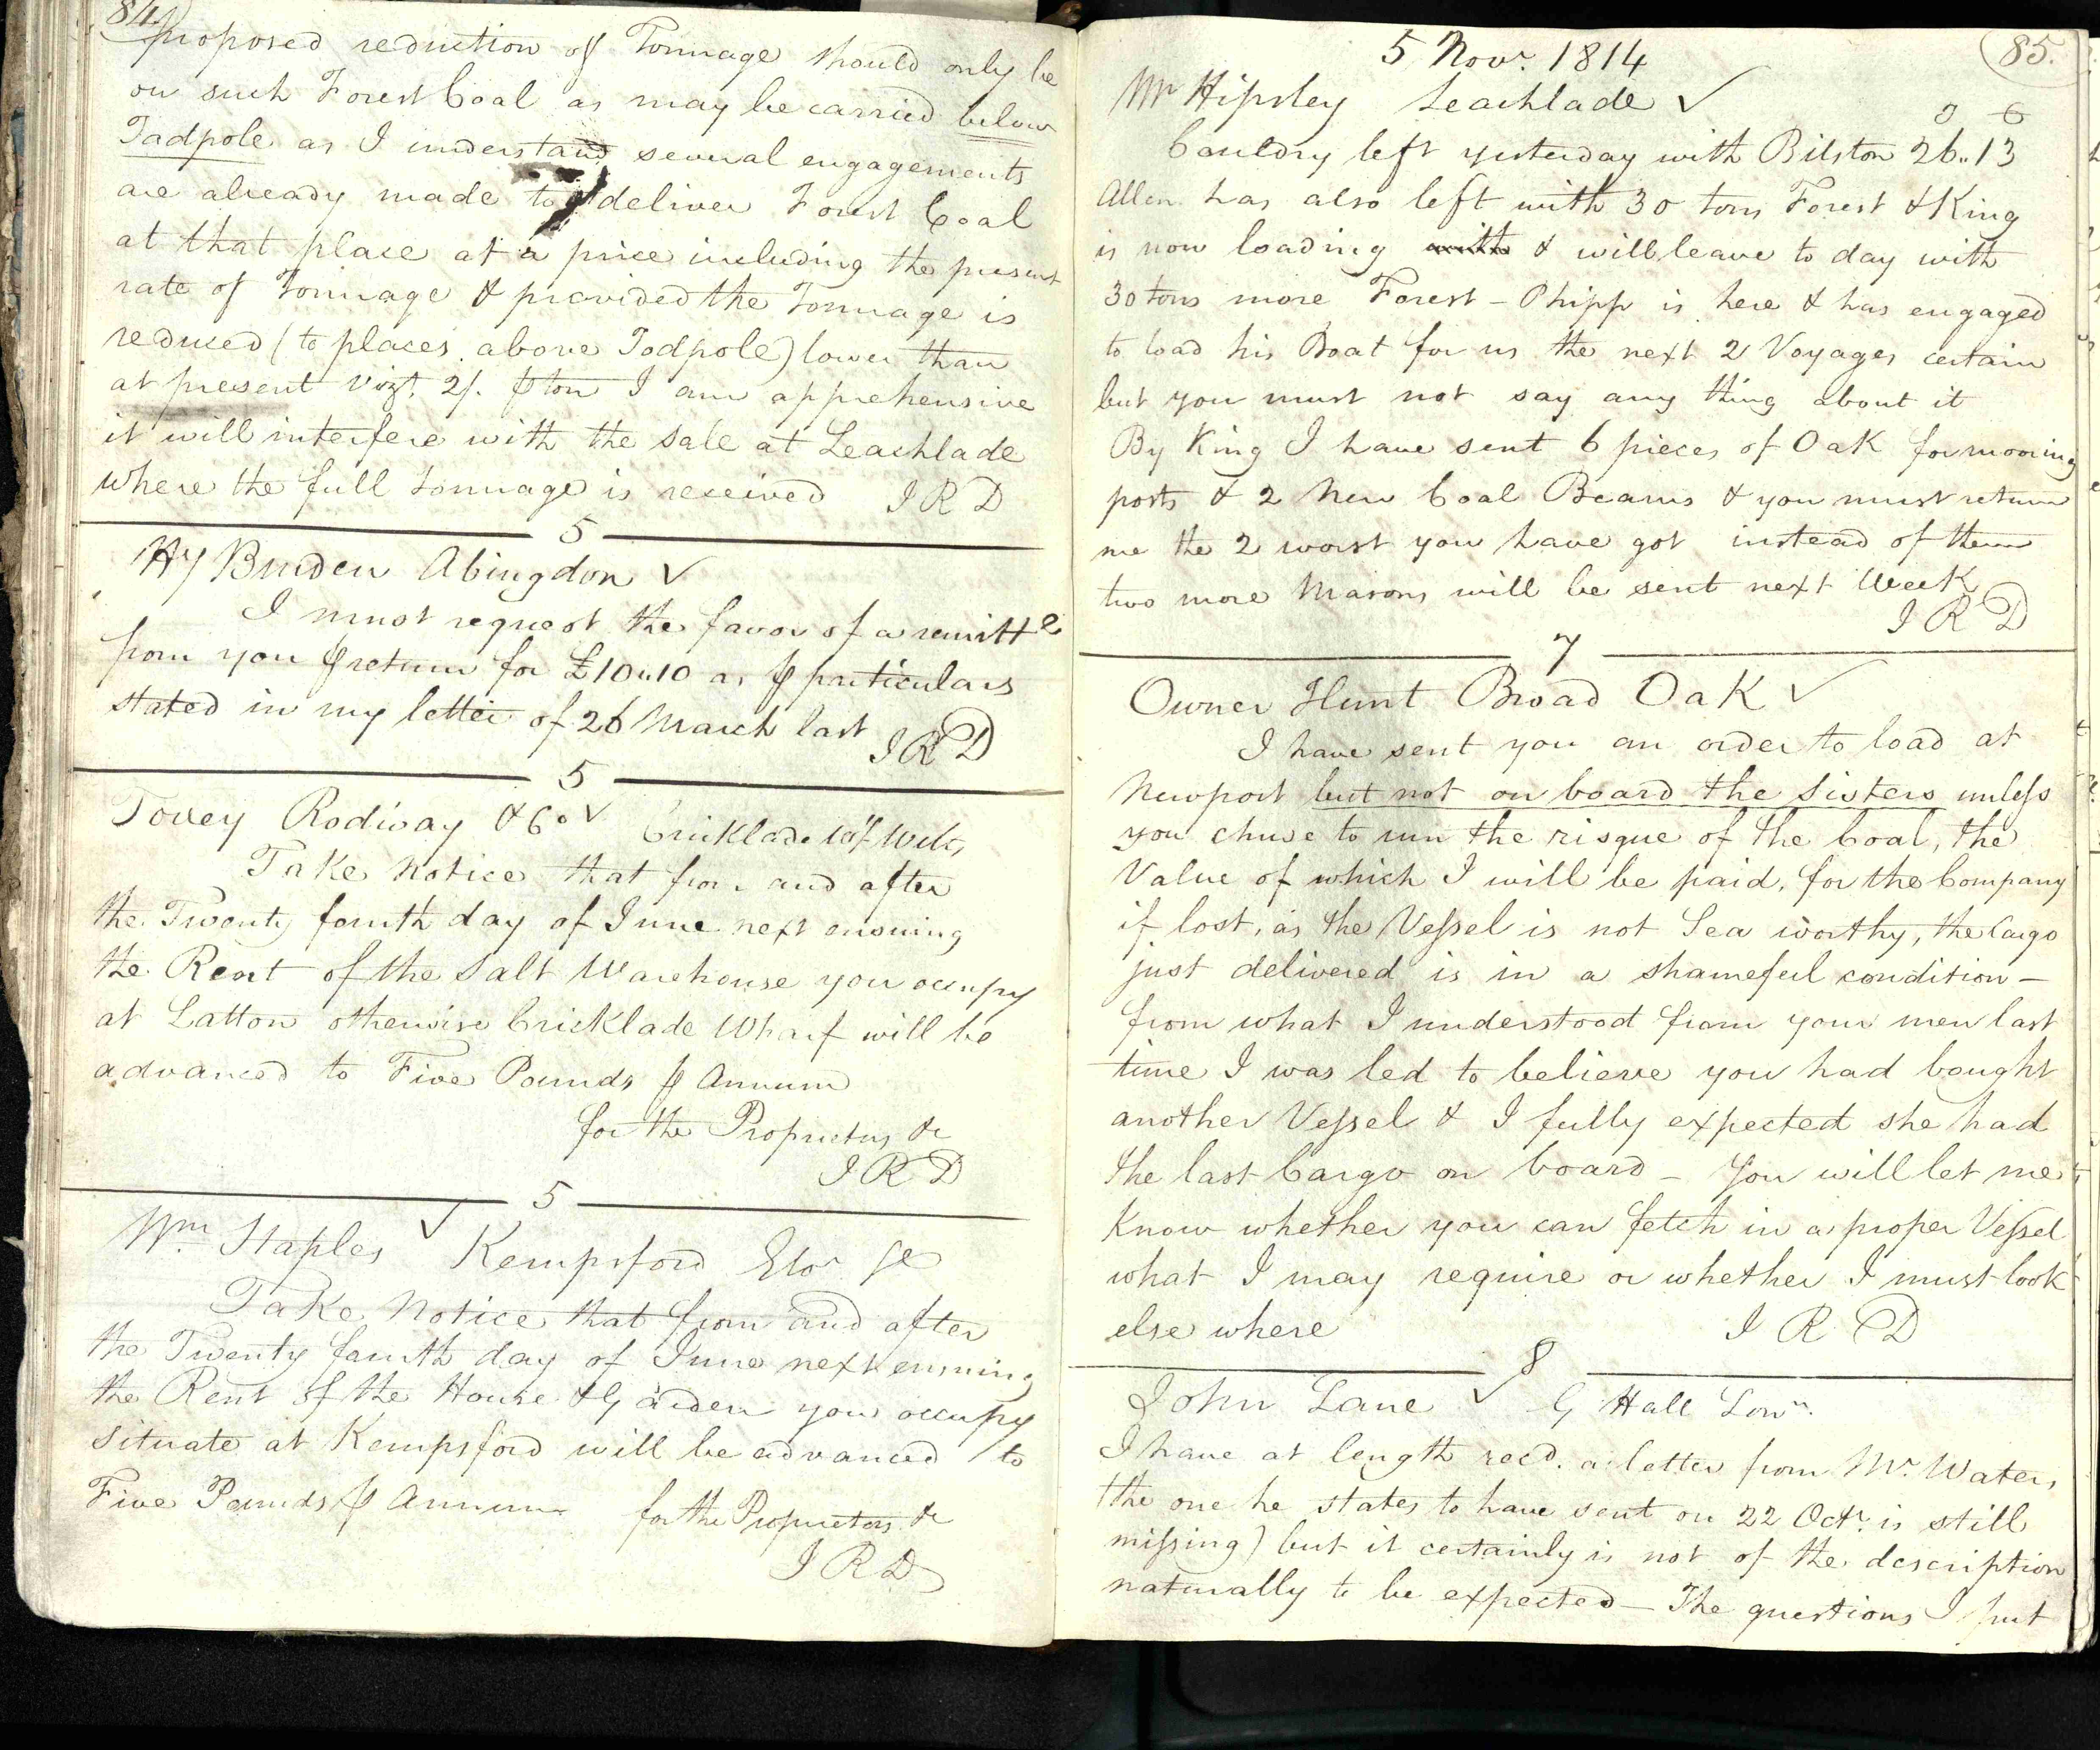 84
proposed reduction of Tonnage should only be
on such Forest Coal as may be carried below
Tadpole as I understand several engagements
are already made to deliver Forest Coal
at that place at a price including the present
rate of Tonnage & provided the Tonnage is
reduced (to places above Tadpole) lower than
at present vizt. 2/. ⅌ ton I am apprehensive
it will interfere with the sale at Leachlade
where the full tonnage is received I R D
5
Hy Burden Abingdon ✓
I must request the favor of a remitte
from you ⅌ return for £10..10 as ⅌ particulars
stated in my letter of 26 March last
I R D
5
Tovey Rodway & Co ✓ Cricklade Wf Wilts
Take Notice that from and after
the Twenty fourth day of June next ensuing
the Rent of the Salt Warehouse you occupy
at Latton otherwise Cricklade Wharf will be
advanced to Five Pounds ⅌ Annum
for the Proprietors &c
I R D
5
Wm Staples ✓ Kempsford Glosr
Take Notice that from and after
the Twenty fourth day of June next ensuing
the Rent of the House & Garden you occupy
situate at Kempsford will be advanced to
Five Pounds ⅌ Annum for the Proprietors &c
I R D
85.
5 Novr. 1814
Mr Hipsley Leachlade ✓
Cauldry left yesterday with Bilston 26..13
Allen has also left with 30 tons Forest & King
is now loading with & will leave to day with
30 tons more Forest – Phipp is here & has engaged
to load his Boat for us the next 2 Voyages certain
but you must not say any thing about it
By King I have sent 6 pieces of Oak for mooring
posts & 2 New Coal Beams & you must return
me the 2 worst you have got instead of them
two more Masons will be sent next Week
I R D
7
Owner Hunt Broad Oak ✓
I have sent you an order to load at
Newport but not on board the Sisters unless
you chuse to run the risque of the Coal, the
Value of which I will be paid, for the Company
if lost, as the Vessel is not Sea worthy, the Cargo
just delivered is in a shameful condition –
from what I understood from your men last
time I was led to believe you had bought
another Vessel & I fully expected she had
the last Cargo on board – You will let me
Know whether you can fetch in a proper Vessel
what I may require or whether I must look
else where I R D
8
John Lane ✓ G Hall Lonn.
I have at length recd. a letter from Mr. Waters,
(the one he states to have sent on 22 Octr. is still
missing) but it certainly is not of the description
naturally to be expected – The questions I put